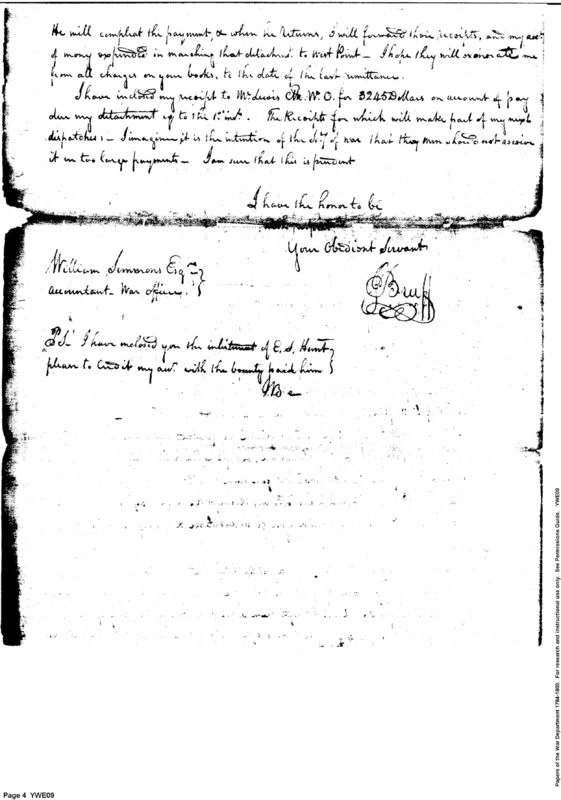 He will compleat the payment, & when he returns, I will forward their receipts, and my acct
of mony expended in marching that detachmt. to West Point – I hope they will exonorate me
from all charges on your books, to the date of the last remittance.
I have inclosed my receipt to Mr. Lewis P.M.W.O. for 3245 Dollars on account of pay
due my detachment up to the 1st inst. The Receipts for which will make part of my next
dispatches – I imagine it is the intention of the Sy of war that they men should not receive
it in too large payments – I am sure that this is prudent
I have the honor to be
Your Obedient Servant
J Bruff
William Simmons Esqr.
Accountant – War office
PS. I have inclosed you the inlistment of E. S. Hunt
please to Credit my acct. with the bounty paid him
J B
Page 4 YWE09
Papers of the War Department 1784-1800. For research and instructional use only. See Permissions Guide. YWE09